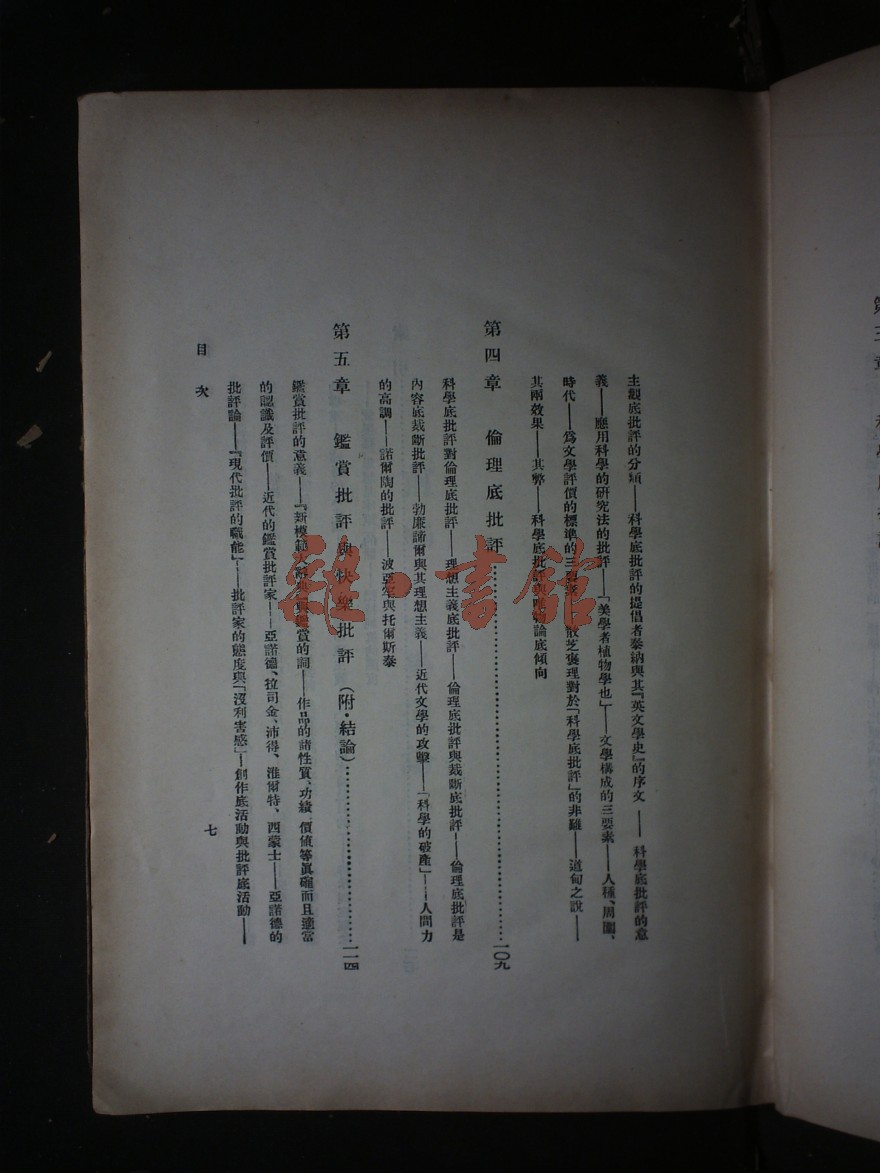 主觀底批評的分類——科學底批評的提倡者泰納與其『英文學史』的序文——科學底批評的意
義——應用科學的研究法的批評——「美學者植物學也」——文學構成的三要素——人種、周圍、
時代——爲文學評價的標準的三要素——散芝褒理對於「科學底批評」的非難——道甸之說——
其兩效果——其弊——科學底批評與唯物論底傾向
第四章 倫理底批評⋯⋯一〇九
科學底批評對倫理底批評——理想主義底批評——倫理底批評與裁斷底批評——倫理底批評是
內容底裁斷批評——勃廉諦爾與其理想主義——近代文學的攻擊——「科學的破產」——人間力
的高調——諾爾陶的批評——波亞牢與托爾斯泰
第五章 鑑賞批評與快樂批評(附·結論)⋯⋯一一四
鑑賞批評的意義——『新模範大辭典』與鑑賞的詞——作品的諸性質、功績、價値等眞確而且適當
的認識及評價——近代的鑑賞批評家——亞諾德、拉司金、沛得、淮爾特、西蒙士——亞諾德的
批評論——『現代批評的職能』——批評家的態度與「沒利害感」——創作底活動與批評底活動——
目次
七
雜·書館
第三章